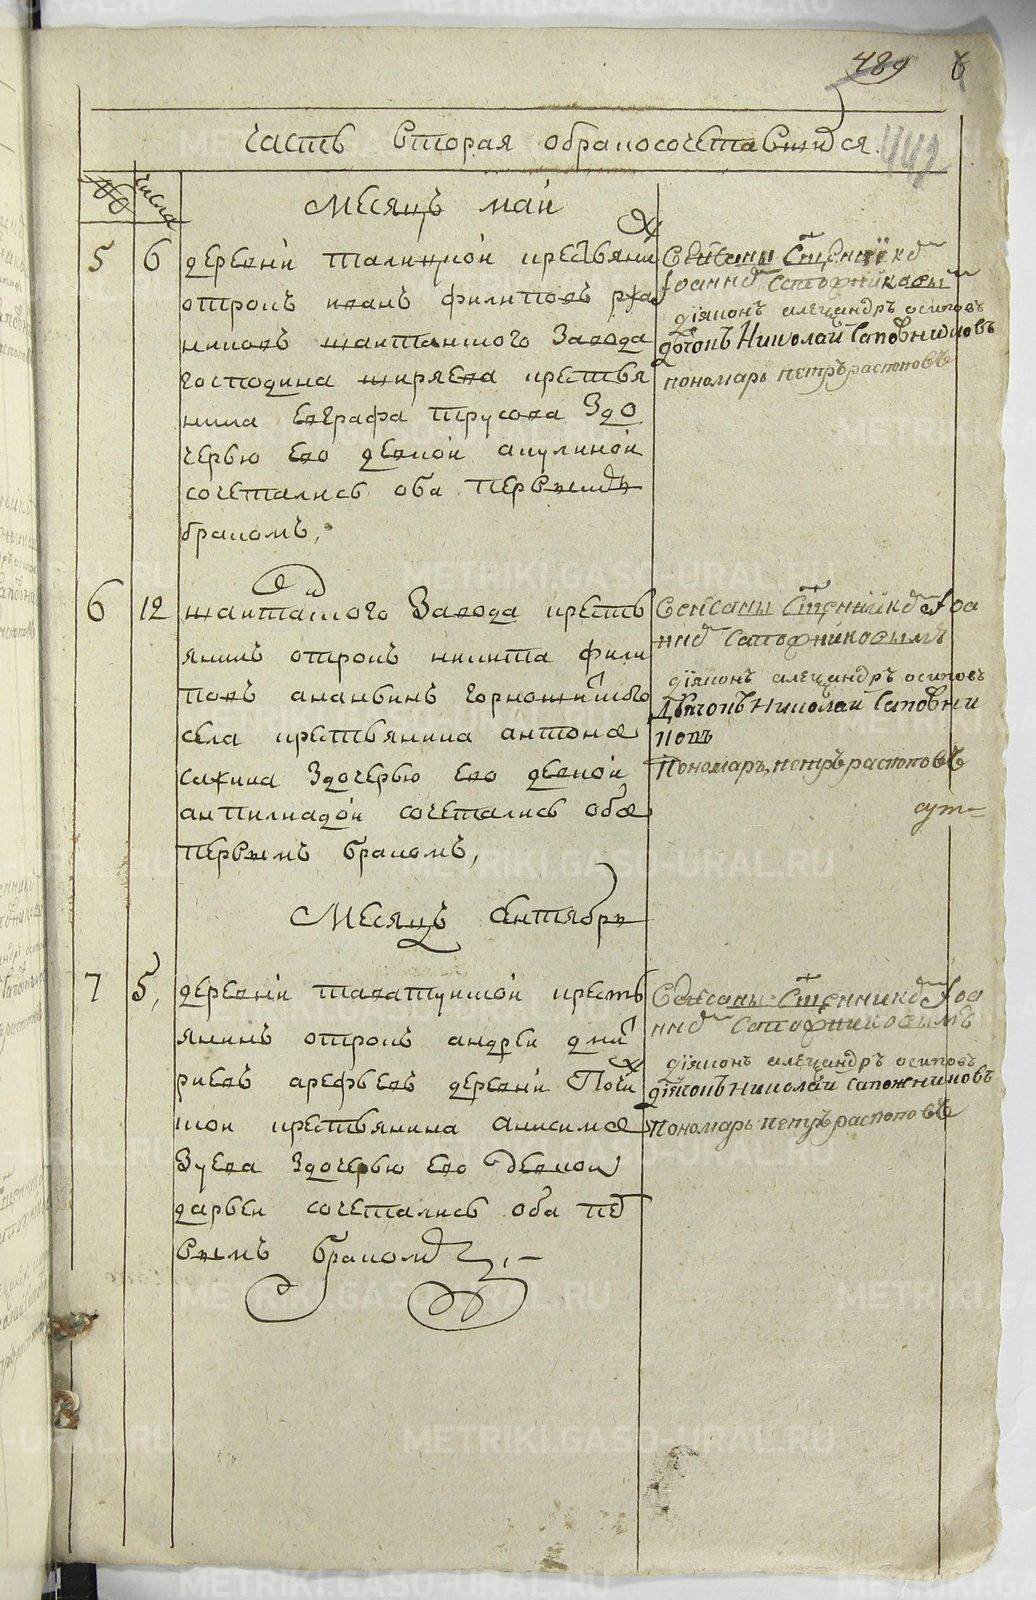 489 6
442
часть вторая обракосочетавшихся
число
месяцъ май
5 6 деревни талицкой крестьяни
отрокъ иванъ филиповъ
никовъ шайтанского завода
господина ширяева крестья
нина евграфа трусова здо
черью ево девкой акулиной
сочетались оба первымъ
бракомъ,
священникъ
Иоаннъ Сапожниковы
діяконъ александръ осиповъ
дьячокъ Николай Сапожниковъ
пономарь петръ распоповъ
6 12 шайтанского завода кресть
янинъ отрокъ никита фили
повъ ананьинъ горношитского
села крестьянина антона
сажина здочерью ево девкой
анпилиадой сочетались оба
первымъ бракомъ,
священникъ Иоа
ннъ Сапожниковымъ
діяконъ александръ осиповъ
Дьячокъ Николай Сапожни
ковъ
Пономарь петръ распоповъ
месяцъ сентябрь
7 5, деревни талатуйской кресть
янинъ отрокъ андрей дми
риевъ арефьевъ деревни
кой крестьянина анисима
Зуева здочерью ево девкой
дарьей сочетались оба пе
рвымъ бракомъ
священникъ Иоа
ннъ Сапожниковымъ
діяконъ александръ осиповъ
дьячокъ Николай Сапожниковъ
Пономарь петръ распоповъ
METRIKI.GASO-URAL.RU